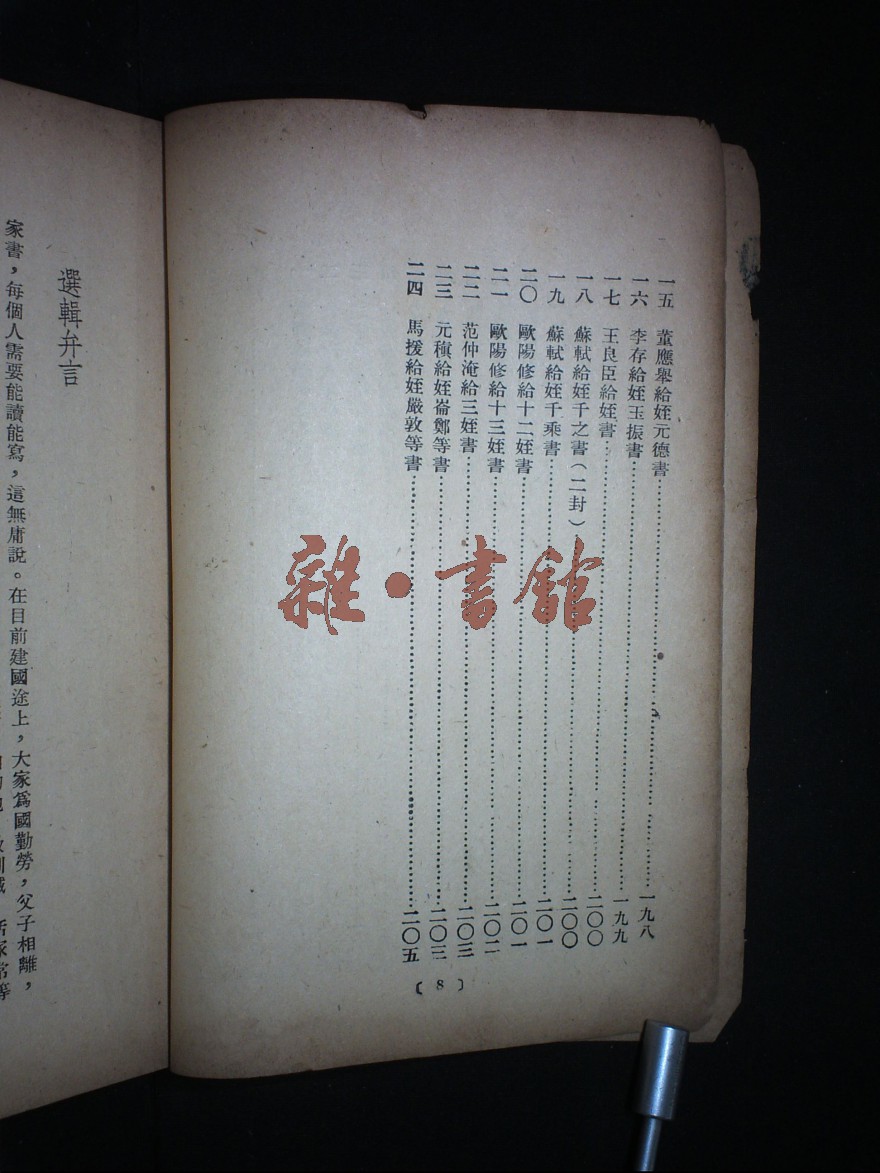 一五　董應舉給姪元德書……一九八
一六　李存給姪玉振書……一九九
一七　王良臣給姪書……二〇〇
一八　蘇軾給姪千之書（二封）……二〇〇
一九　蘇軾給姪千乘書……二〇一
二〇　歐陽修給十二姪書……二〇一
二一　歐陽修給十三姪書……二〇二
二二　范仲淹給三姪書……二〇三
二三　元稹給姪崙鄭等書……二〇三
二四　馬援給姪嚴敦等書……二〇五
〔8〕
雜·書館
選輯弁言
家書，每個人需要能讀能寫，這無庸說。在目前建國途上，大家爲國勤勞，父子相離，